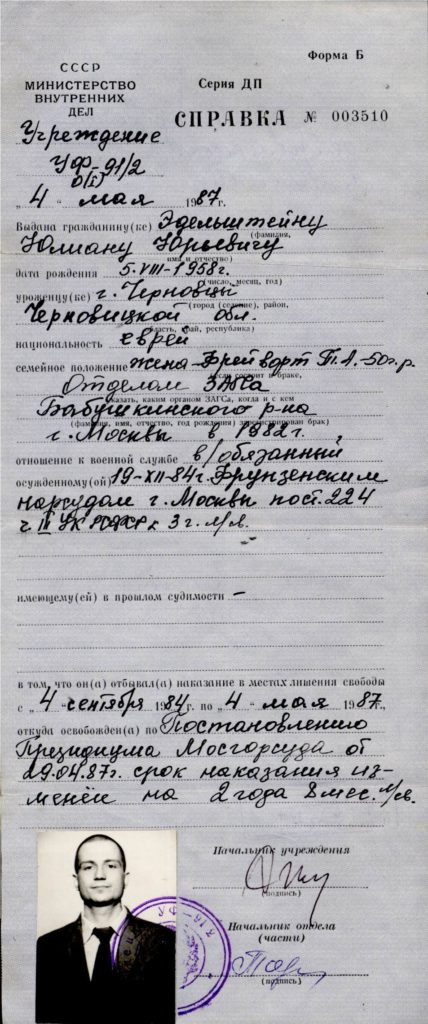 Форма Б
СССР
МИНИСТЕРСТВО
ВНУТРЕННИХ
ДЕЛ
Серия ДП
СПРАВКА № 003510
Учреждение
УФ-91/2
"4" мая 1987г.
Выдана гражданину(ке) Эдельштейну
(фамилия,
Юлиану Юрьевичу
имя и отчество)
дата рождения 5.VIII-1958г.
(число, месяц, год)
уроженцу(ке) г. Черновцы
(город (селение), район,
Черновицкой обл.
область, край, республика)
национальность еврей
семейное положение жена-Фрейворт Т.А.-50г.р.
(если состоит в браке,
Отделом ЗАГСа
указать, каким органом ЗАГСа, когда и с кем
Бабушкинского р-на
(фамилия, имя, отчество, год рождения) зарегистрирован брак)
г. Москвы в 1982г.
отношение к военной службе в/обязанный
осужденному(ой) 19-XII-84г. Фрунзенским
нарсудом г. Москвы по ст. 224
ч III УК РСФСР к 3 г. л/св.
имеющему(ей) в прошлом судимости –
в том, что он(а) отбывал(а) наказание в местах лишения свободы
с "4" сентября 1984г. по "4" мая 1987г.
откуда освобожден(а) по Постановлению
Президиума Мосгорсуда от
29.04.87г. срок наказания из-
менён на 2 года 8 мес. л/св.
Начальник учреждения
(подпись)
Начальник отдела
(части)
(подпись)